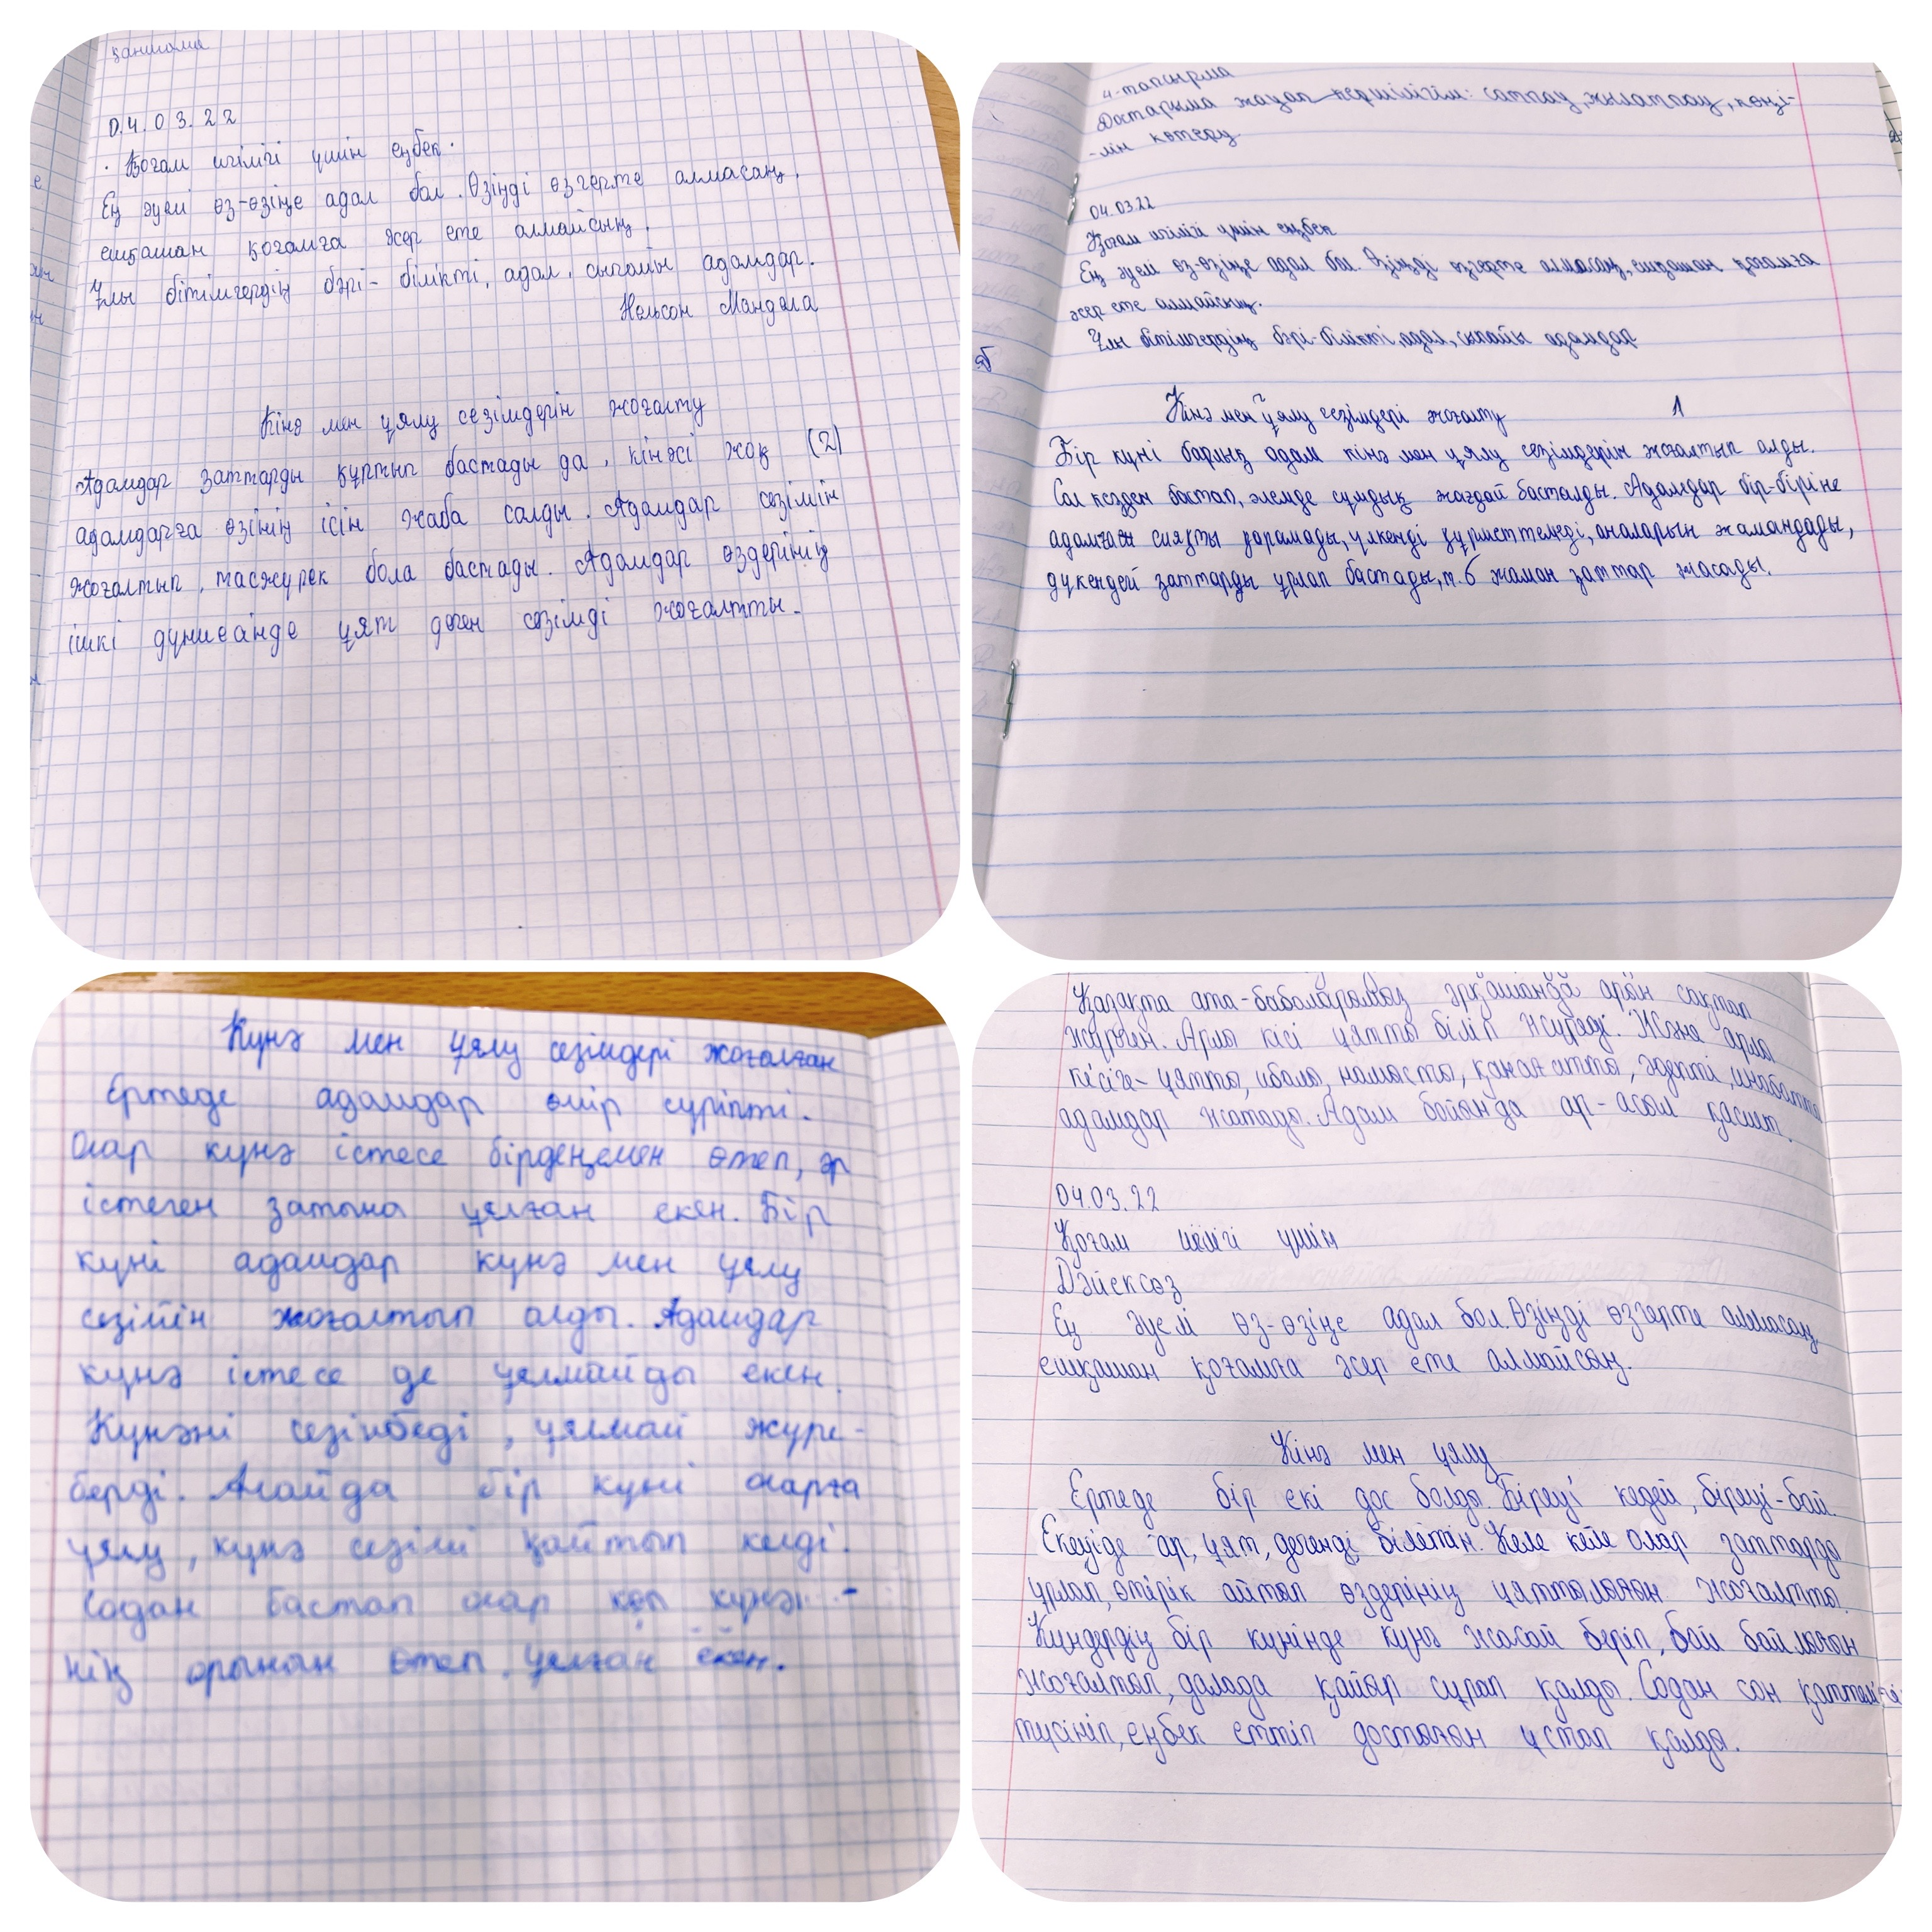 қаншама
04.03.22
Қоғам игілігі үшін еңбек.
Ең әуелі өз-өзіңе адал бол. Өзіңді өзгерте алмасаң,
ешқашан қоғамға әсер ете алмайсың.
Ұлы бітімгердің бәрі- білікті, адал, сыпайы адамдар.
Нельсон Мандела
Кінә мен ұялу сезімдерін жоғалту
Адамдар заттарды құртып бастады да, кінәсі жоқ (2)
адамдарға өзінің ісін жаба салды. Адамдар сезімін
жоғалтып, тасжүрек бола бастады. Адамдар өздерінің
ішкі дүниеәнде ұят деген сезімді жоғалтты.
4-тапсырма
Достарыма жақсы көршілігім: сатпау, жылатпау, көңі-
-лін көтеру
04.03.22
Қоғам игілігі үшін еңбек
Ең әуелі өз-өзіңе адал бол. Өзіңді өзгерте алмасаң, ешқашан қоғамға
әсер ете алмайсың.
Ұлы бітімгердің бәрі-білікті, адал, сыпайы адамдар
Кінә мен ұялу сезімдері жоғалту 1
Бір күні барлық адам кінә мен ұялу сезімдерін жоғалтып алды.
Сол кезден бастап, әлемде сұмдық жағдай басталды. Адамдар бір-біріне
адамған сияқты қарамады, үлкенді құрметтемеді, аналарын жамандады,
дүкендей заттарды ұрлап бастады, т.б жаман заттар жасады.
Күнә мен ұялу сезімдері жоғалған
Ертеде адамдар өмір сүріпті.
Олар күнә істесе бірдеңемен өтеп, әр
істеген затына ұялған екен. Бір
күні адамдар күнә мен ұялу
сезімін жоғалтып алды. Адамдар
күнә істесе де ұялмайды екен.
Күнәні сезінбеді, ұялмай жүре-
берді. Алайда бір күні оларға
ұялу, күнә сезімі қайтып келді.
Содан бастап олар көп күнә -
нің орынын өтеп, ұялған екен.
Қазақта ата-бабаларымыз әрқашанда арын сақтап
жүрген. Арлы кісі ұятты біліп жүреді. Және арлы
кісіге- ұятты, ибалы, намысты, қанағатты, әдепті, инабатты
адамдар жатады. Адам бойында ар-асыл қасиет.
04.03.22
Қоғам игілігі үшін
Дәйексөз
Ең әуелі өз-өзіңе адал бол. Өзіңді өзгерте алмасаң,
ешқашан қоғамға әсер ете алмайсың.
Кінә мен ұялу
Ертеде бір екі дос болды. Біреуі кедей, біреуі-бай.
Екеуіде ар, ұят, дегенді білетін. Келе келе олар заттарды
ұрлап, өтірік айтып өздерінің ұяттылығын жоғалтты.
Күндердің бір күнінде күнә жасай беріп, бай байлығын
жоғалтып, далада қайыр сұрап қалды. Содан сон қаттелігі
түсініп, еңбек еттіп достығын ұстап қалды.